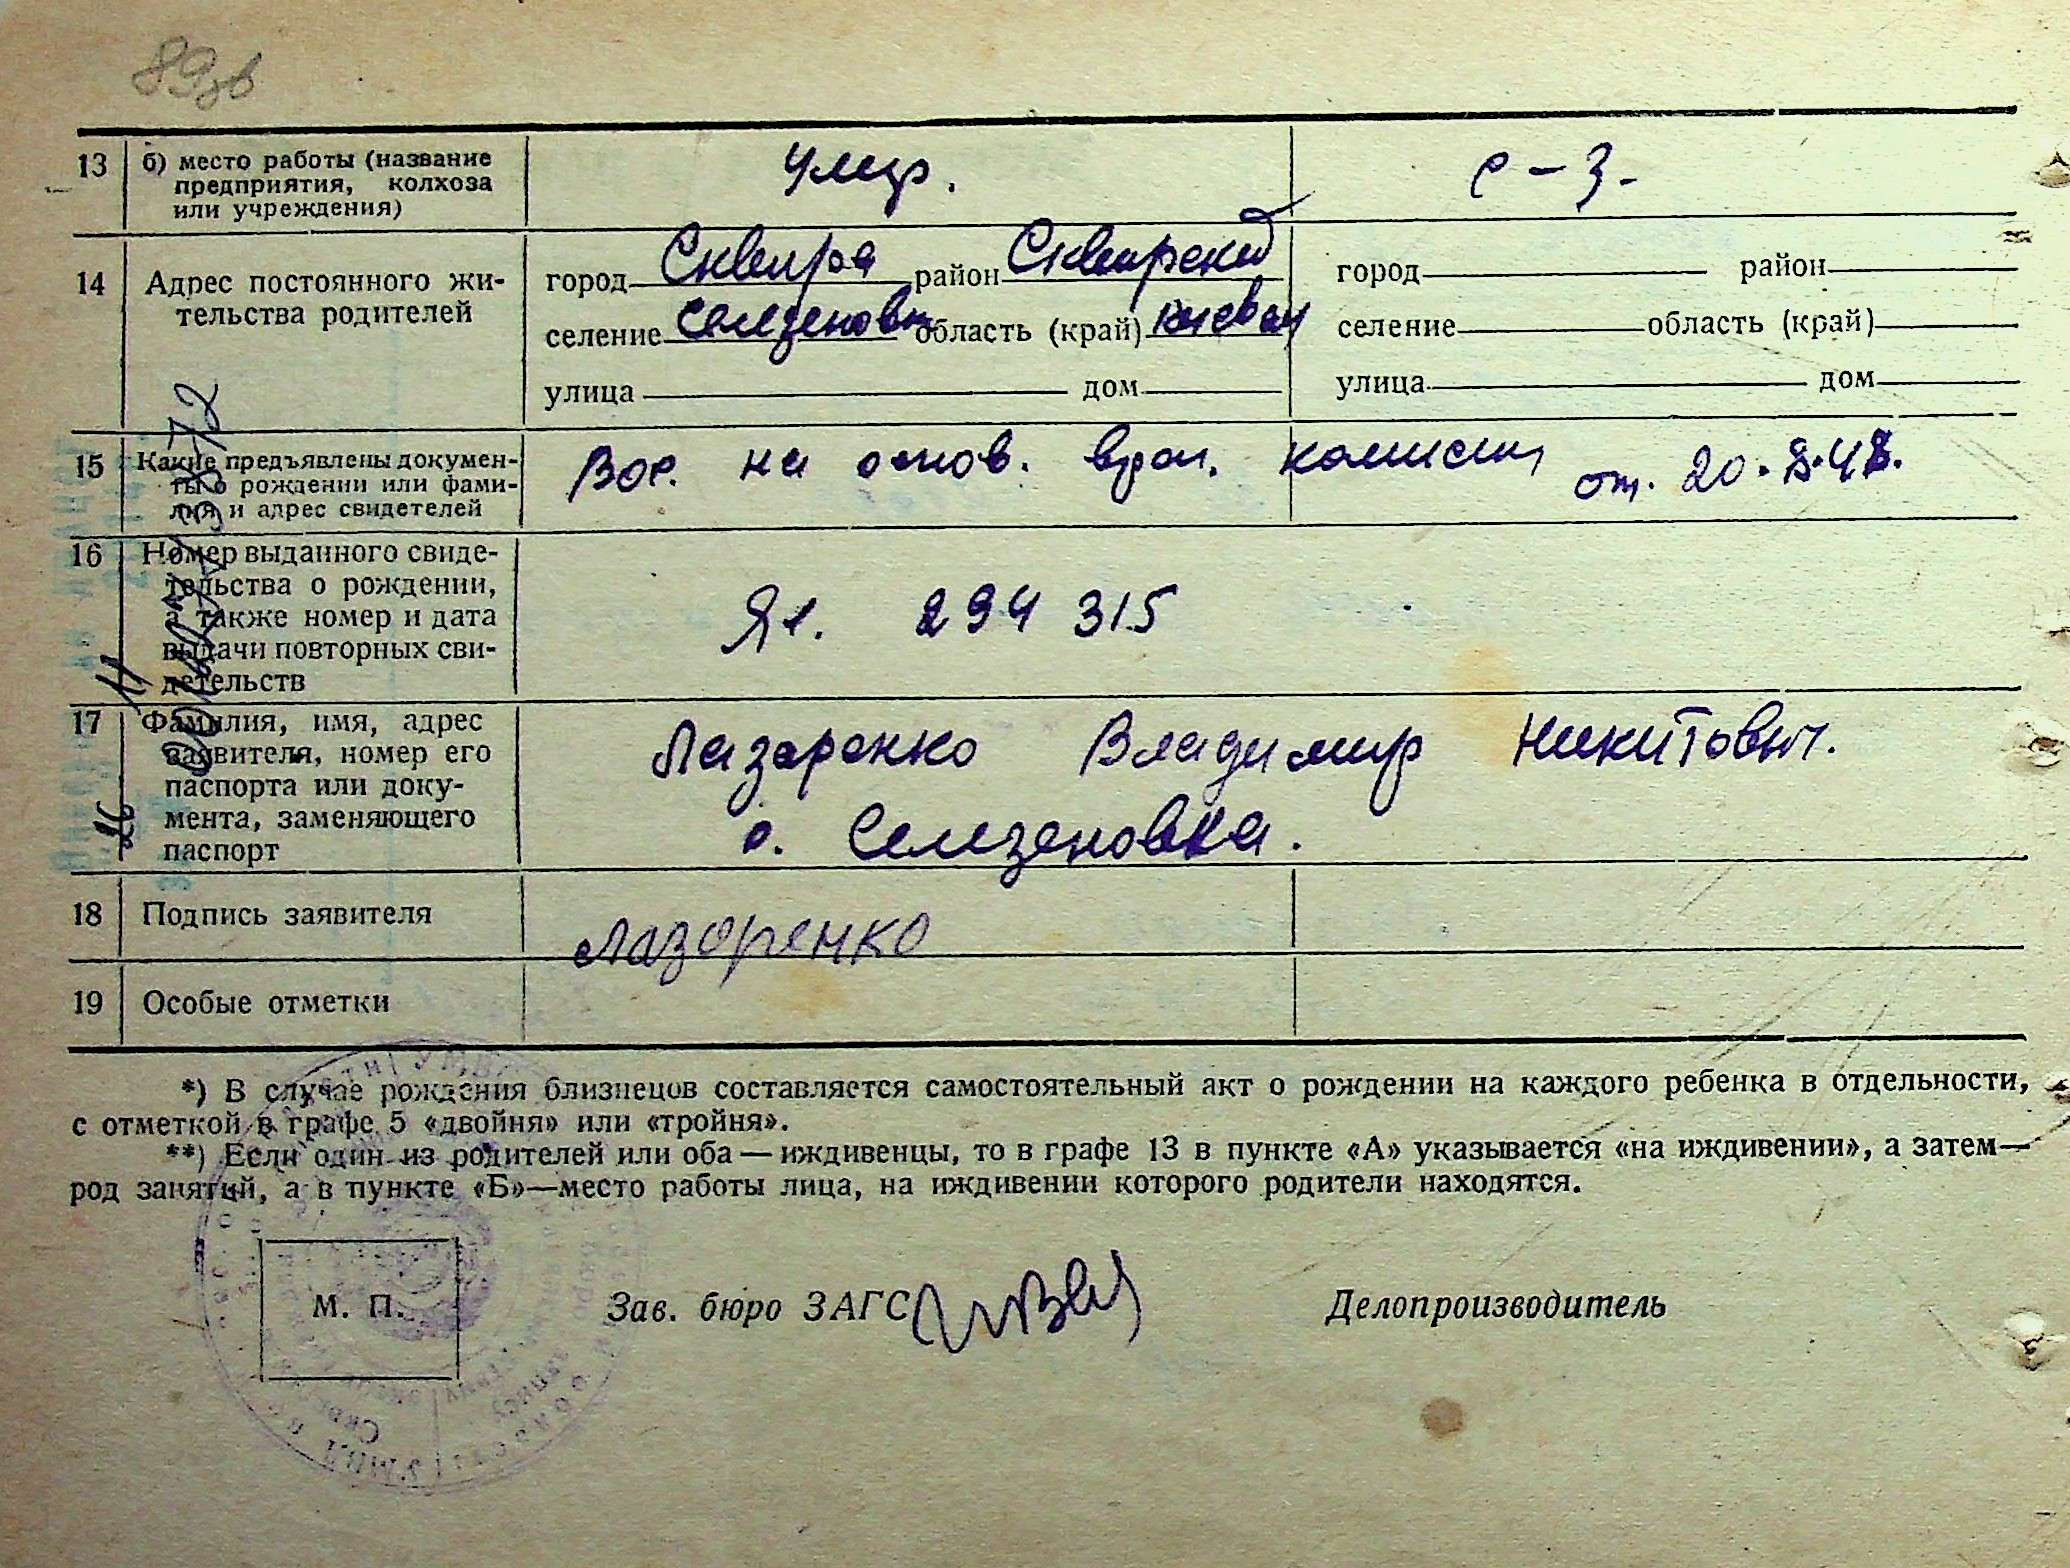 89зв
13 б) место работы (название
предприятия, колхоза
или учреждения)
умер. с-з.
14 Адрес постоянного жи-
тельства родителей
город Сквира район Сквирский
селение Селезеновк область (край) Киевск
улица дом
город район
селение область (край)
улица дом
15 Какие предъявлены докумен-
ты о рождении или фами-
лия и адрес свидетелей
Вос. на основ. врач. комисии от. 20.
16 Номер выданного свиде-
тельства о рождении,
а также номер и дата
выдачи повторных сви-
детельств
294315
17 Фамилия, имя, адрес
заявителя, номер его
паспорта или доку-
мента, заменяющего
паспорт
Лазаренко Владимир Никитович.
с. Селезеновка.
18 Подпись заявителя
Лазоренко
19 Особые отметки
*) В случае рождения близнецов составляется самостоятельный акт о рождении на каждого ребенка в отдельности,
с отметкой в графе 5 «двойня» или «тройня».
**) Если один из родителей или оба — иждивенцы, то в графе 13 в пункте «А» указывается «на иждивении», а затем—
род занятий, а в пункте «Б»—место работы лица, на иждивении которого родители находятся.
М. П.
Зав. бюро ЗАГС
Делопроизводитель